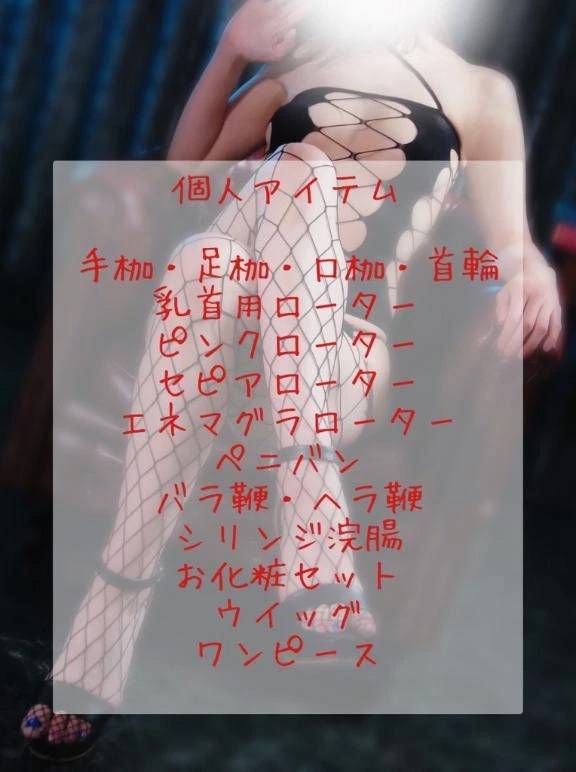 個人アイテム
手枷・足枷・口枷・首輪
乳首用ローター
ピンクローター
セピアローター
エネマグラローター
ペニバン
バラ鞭・ヘラ鞭
シリンジ浣腸
お化粧セット
ウイッグ
ワンピース